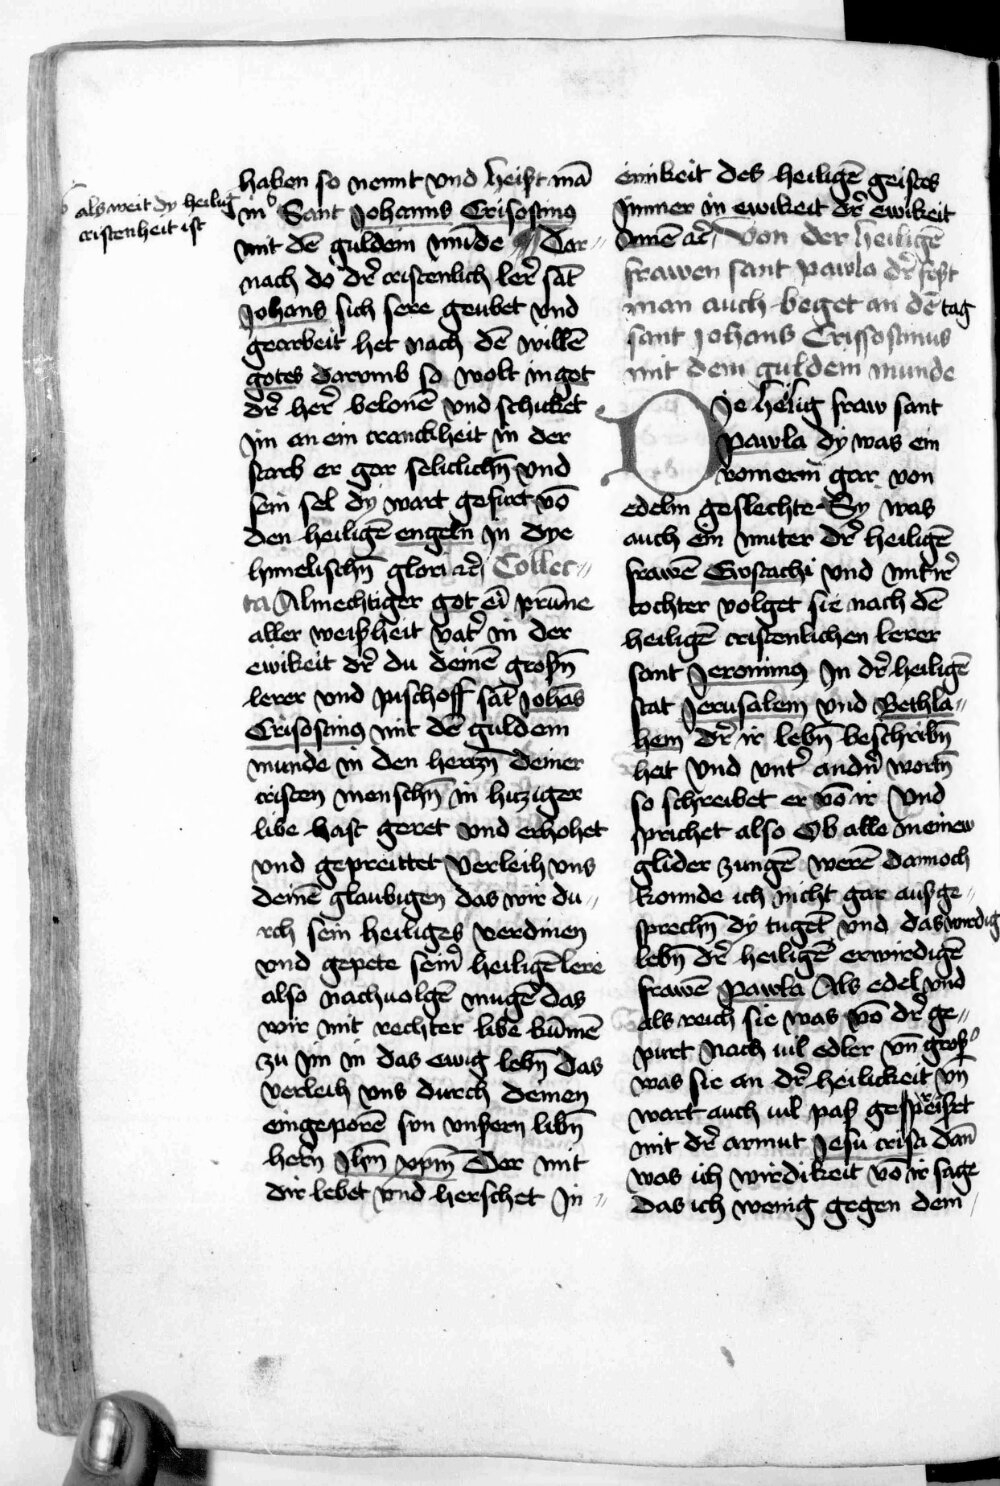 als weit dy heilig
cristenheit ist
haben so nennt vnd heist mā
in Sant Johannes Crisostimus
mit dē guldein mūde Dar-
nach do dr̄ cristenlich lerer̄ sāt
Johans sich sere geubet vnd
gearbeit het nach dē willē
gotes darvmb so wolt in got
dr̄ her̄ belonē vnd schicket
jm an ein kranckheit in der
starb er gar seliclichn̄ vnd
sein sel dy wart gefurt vō
den heiligē engeln in dye
hymelischn̄ glori ꝛc̄ Collec-
ta Almechtiger got eī prūne
aller weißheit vater̄ in der
ewikeit dr̄ du deinē großn̄
lerer vnd pischoff sāt Johās
Crisostimus mit dē guldem
munde in den hertzn̄ deiner
cristen menschn̄ in hitziger
libe hast geret vnd erhohet
vnd gepreittet Verleih vns
deinē glaubigen das wir du-
rch sein heiliges verdinen
vnd gepete seinr̄ heiligē lere
also nachuolgē mugē das
wir mit rechter libe kūmē
zu jm in das ewig lebn̄ Das
verleih vns durch deinen
eingeporē sun vnsern libn̄
hern Jhm̄ xpm̄ Der mit
dir lebet vnd herschet In-
einikeit des heiligē geistes
Immer in ewikeit dr̄ ewikeit
Amē ꝛc̄ Von der heiligē
frawen sant pawla dr̄ fest
man auch beget an dē tag
sant Johans Crissostimus
mit dem guldem munde
Die heilig fraw sant
Pawla dy was ein
romerin gar von
edelm geslechte Sy was
auch ein muter dr̄ heiligē
frawē Eustachi vnd mit ir̄
tochter volget sie nach dē
heiligē cristenlichen lerer
sant Jeronimus In dr̄ heiligē
stat Jerusalem vnd Bethla-
hem dr̄ ir lebn̄ beschribn̄
heit Vnd vntr̄ andn̄ wortn̄
so schreibet er vō ir Vnd
sprichet also Ob alle meinew
glider zungē werē dannoch
konnde ich nicht gar auß ge-
sprechn̄ dy tugēt vnd das wirdig
lebn̄ dr̄ heiligē erwirdigē
frawē Pawla Als edel vnd
als reich sie was vō dr̄ ge-
purt Nach vil edler vn̄ großr̄
was sie an dr̄ heilickeit vn̄
wart auch vil paß gespreiset
mit dr̄ armut Jesu cristi dān
was ich wirdikeit vō ir sage
das ich wenig gegen dem